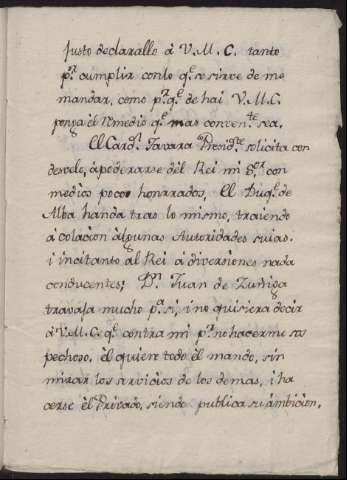 justo declarallo á V. M. C. tanto
pr. cumplir con lo q.e se sirve de me
mandar, como pr. q.e de hai V. M. C.
ponga el Remedio q.e mas conven.te sea.
El Card.l Tavara Presid.te solicita con
desvelo, apoderarse del Rei mi S.or con
medios pocoo honrrados, El Duq.e de
Alba handa tras lo mismo, traiendo
á colacion algunas Autoridades suias.
i incitanto al Rei á diversiones nada
conducentes; D.n Juan de Zuñiga
travaja mucho p.a si, i no quisiera decir
á V. M. C. q.e contra mi p.r no hacerme sos
pechoso, él quiere todo él mando, sin
mirar los servicios de los demas, i ha
cerse él Privado, siendo publica su ambicion,